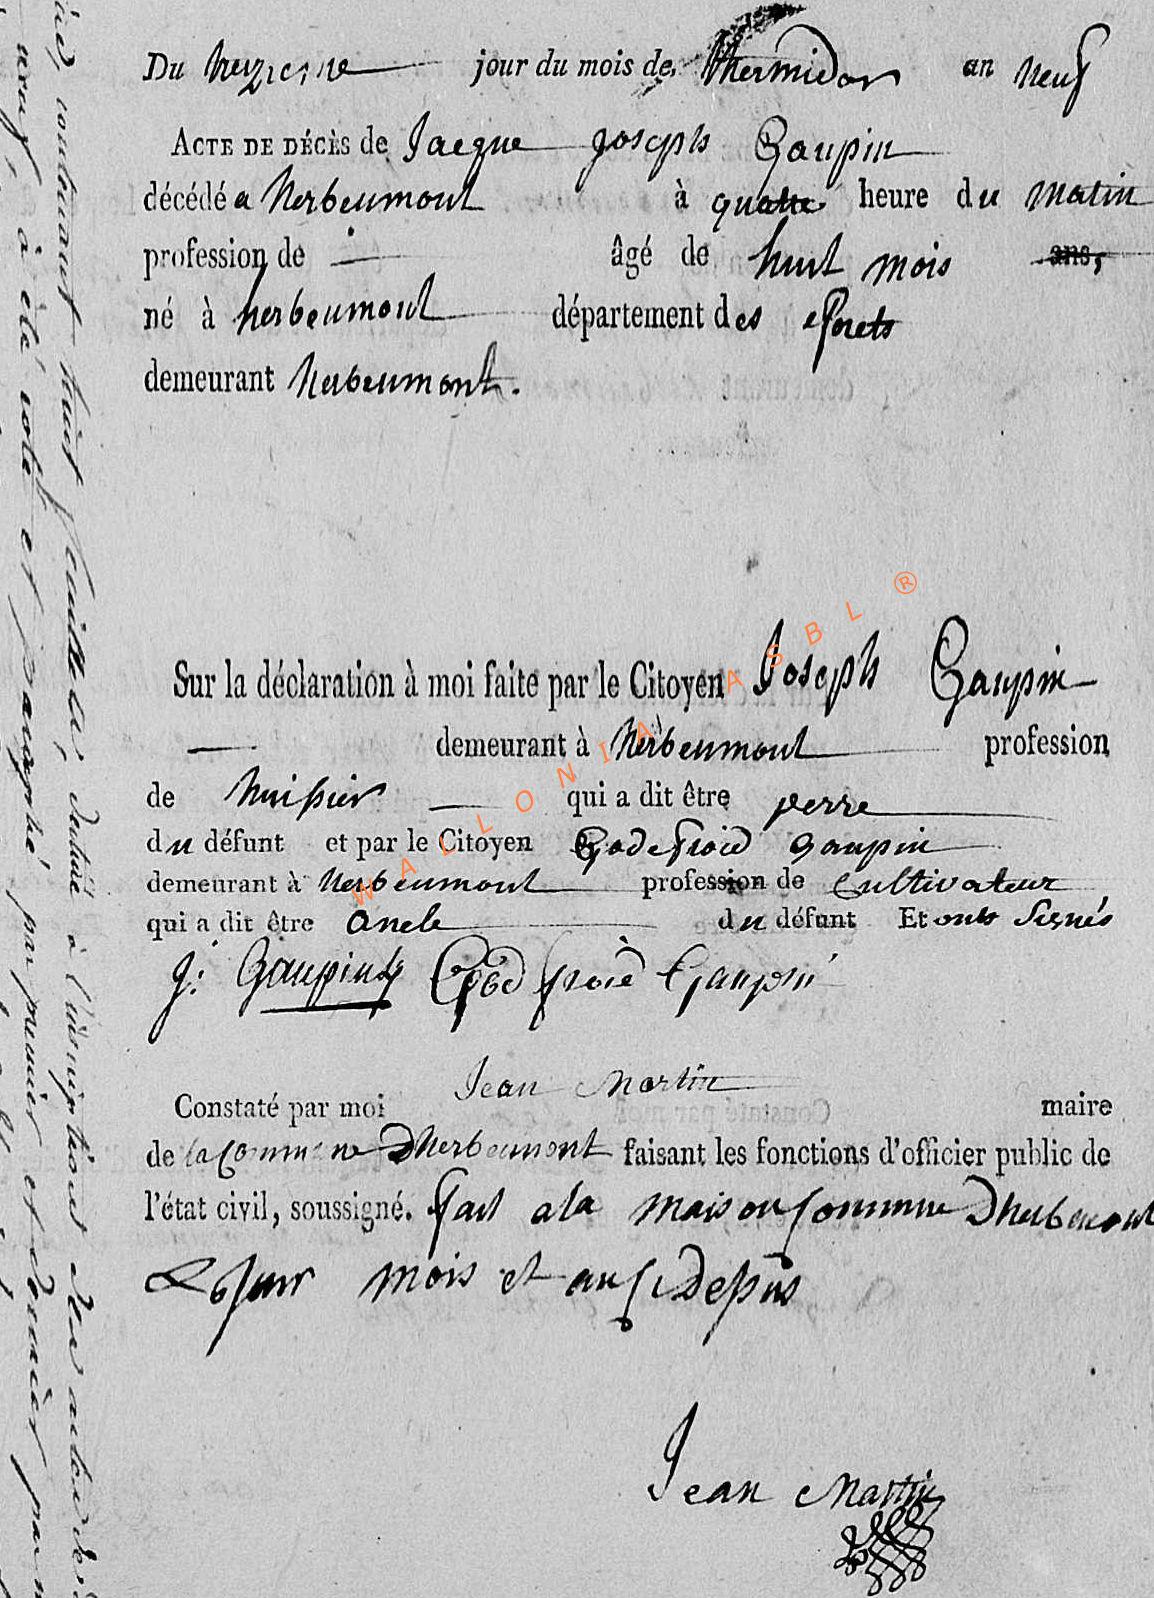 Du treizieme jour du mois de Thermidor an neuf
ACTE DE DÉCÈS de Jacque joseph Gaupin
décédé a herbeumont à quatre heure du matin
profession de — âgé de huit mois ans,
né à herbeumont département des forets
demeurant herbeumont.
Sur la déclaration à moi faite par le Citoyen Joseph Gaupin
— demeurant à herbeumont profession
de huissier — qui a dit être perre
du défunt et par le Citoyen Godefroid gaupin
demeurant à herbeumont profession de Cultivateur
qui a dit être oncle du défunt Et onts signés
j: Gaupin Godfroid Gaupin
Constaté par moi Jean Martin maire
de la Commune Dherbeumont faisant les fonctions d'officier public de
l'état civil, soussigné. fait a la maison Commune Dherbeumont
Le jour mois et an Ci Depus
Jean Martin
WALLONIA ASBL ®
contenant huit feuilles, destiné à l'inscription des actes de
neuf, à été coté et paraphé par premier et dernier par